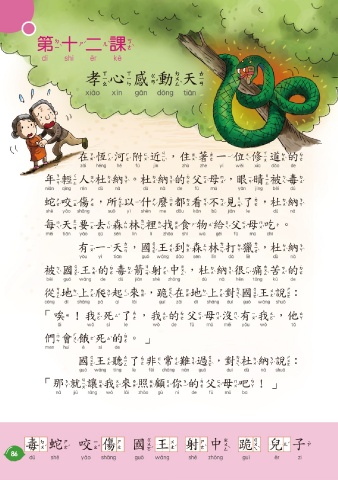 第十二課
dì shí èr kè
孝心感動天
xiào xīn gǎn dòng tiān
在恆河附近，住著一位修道的
年輕人杜納。杜納的父母，眼睛被毒
蛇咬傷，所以什麼都看不見了，杜納
每天要去森林裡找食物給父母吃。
有一天，國王到森林打獵，杜納
被國王的毒箭射中，杜納很痛苦的
從地上爬起來，跪在地上對國王說：
「唉！我死了，我的父母沒有我，他
們會餓死的。」
國王聽了非常難過，對杜納說：
「那就讓我來照顧你的父母吧！」
86
毒蛇 咬傷 國王 射中 跪 兒子
dú shé yǎo shāng guó wáng shè zhòng guì ér zi